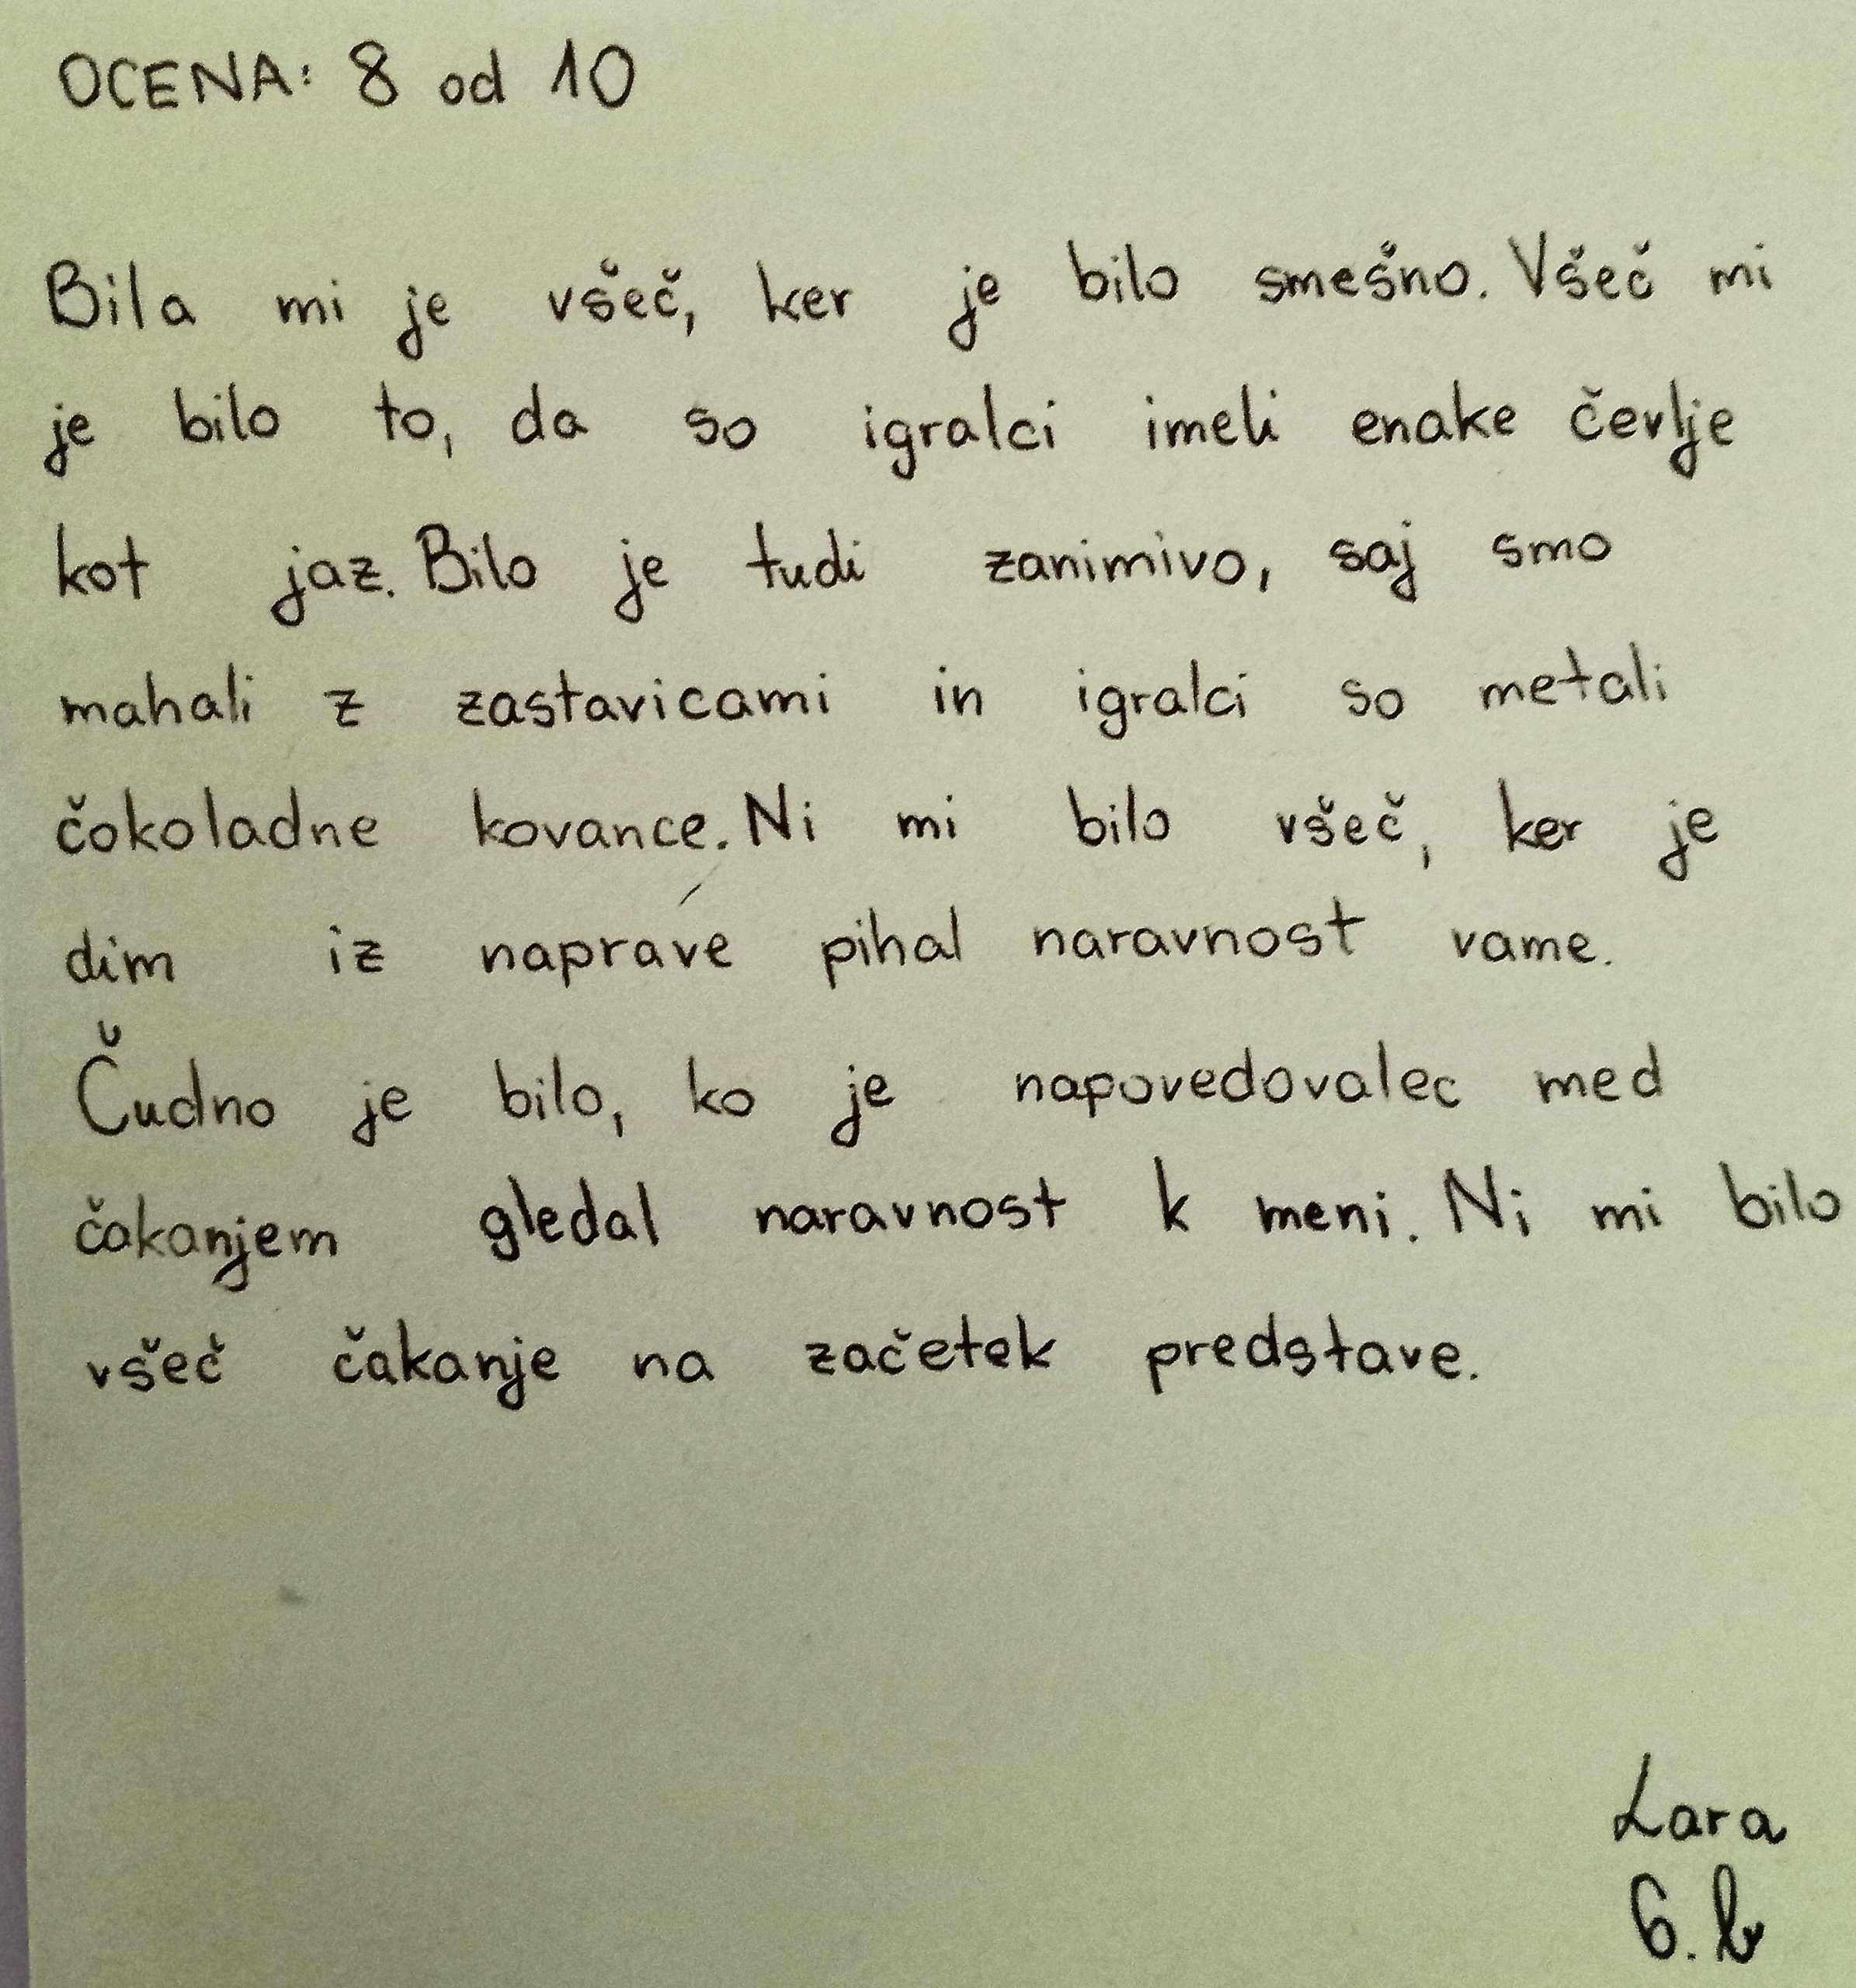 OCENA: 8 od 10
Bila mi je všeč, ker je bilo smešno. Všeč mi
je bilo to, da so igralci imeli enake čevlje
kot jaz. Bilo je tudi zanimivo, saj smo
mahali z zastavicami in igralci so metali
čokoladne kovance. Ni mi bilo všeč, ker je
dim iz naprave pihal naravnost vame.
Čudno je bilo, ko je napovedovalec med
čakanjem gledal naravnost k meni. Ni mi bilo
všeč čakanje na začetek predstave.
Lara
6. b